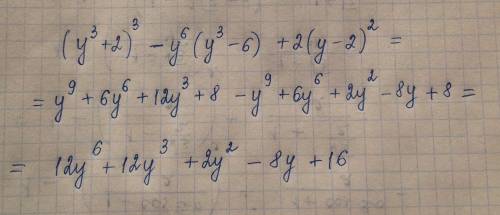 (y³+2)³ − y⁶(y³−6) + 2(y−2)² =
= y⁹ + 6y⁶ + 12y³ + 8 − y⁹ + 6y⁶ + 2y² − 8y + 8 =
= 12y⁶ + 12y³ + 2y² − 8y + 16